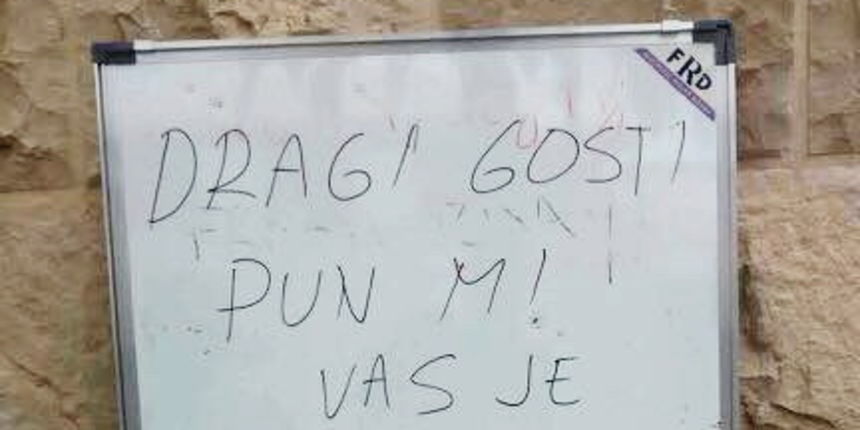 FRD
DRAGI GOSTI
PUN M!
VAS JE